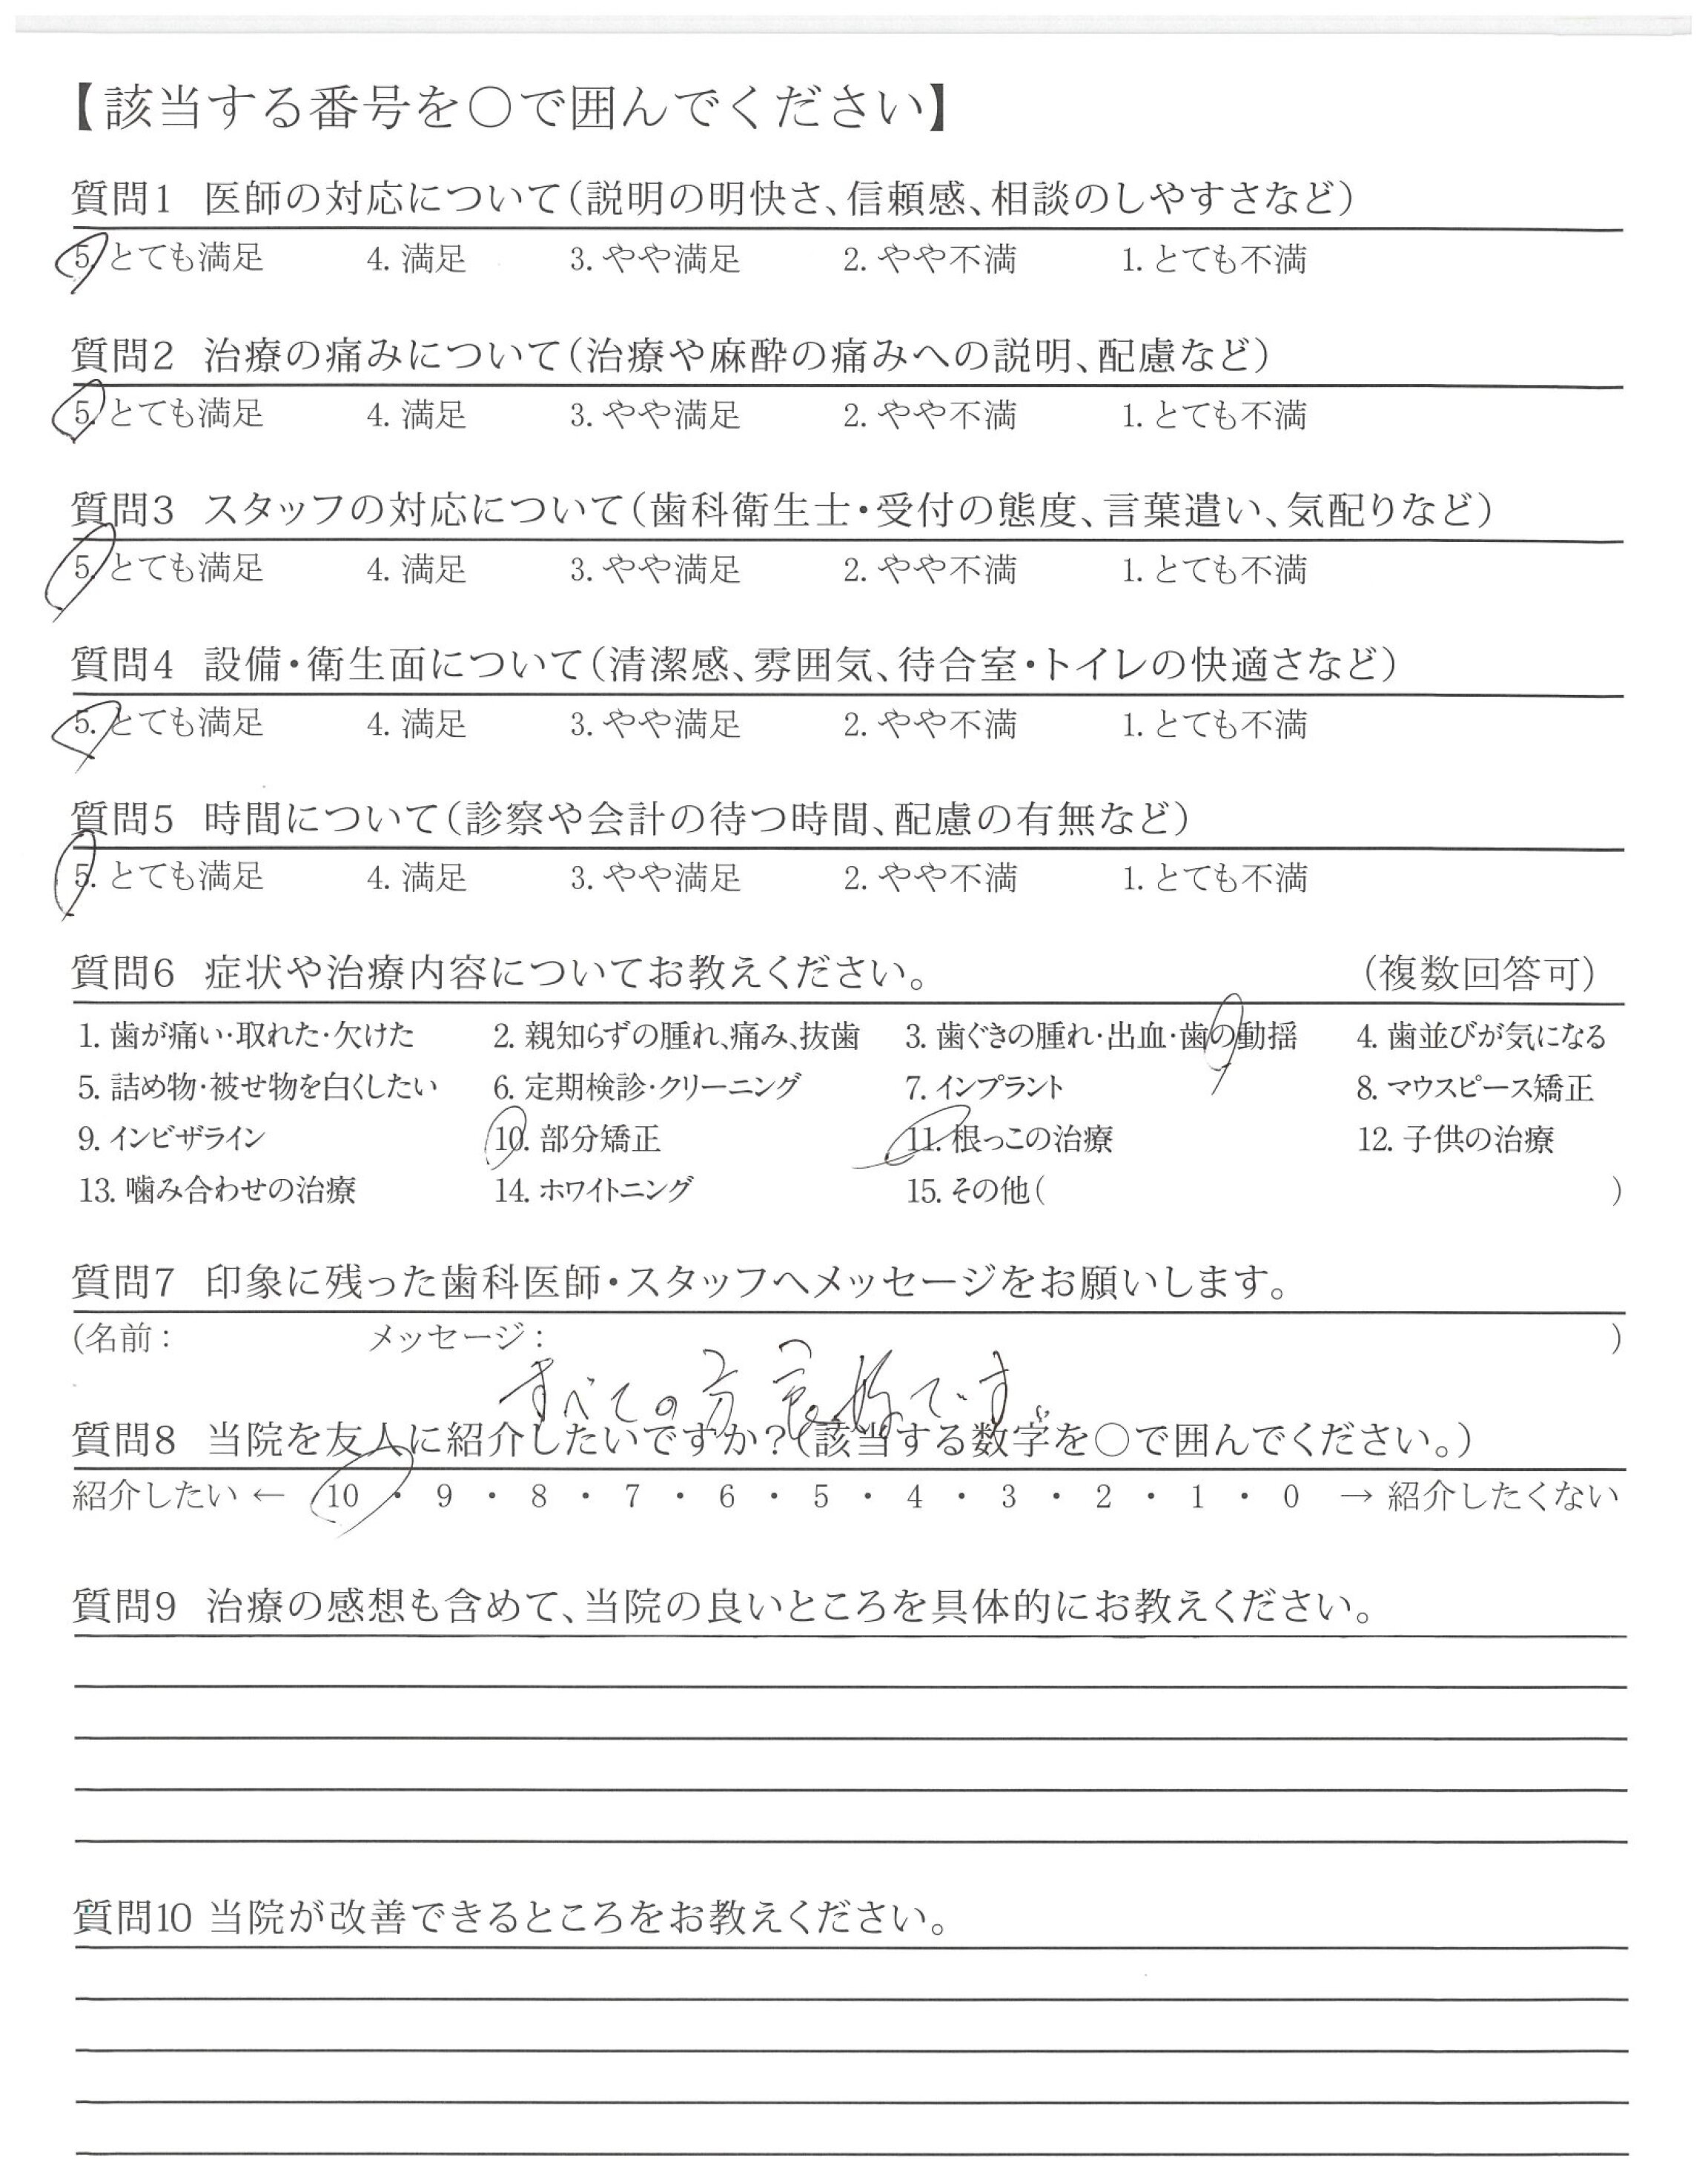 【該当する番号を○で囲んでください】
質問1 医師の対応について(説明の明快さ、信頼感、相談のしやすさなど)
5. とても満足 4. 満足 3. やや満足 2. やや不満 1. とても不満
質問2 治療の痛みについて(治療や麻酔の痛みへの説明、配慮など)
5. とても満足 4. 満足 3. やや満足 2. やや不満 1. とても不満
質問3 スタッフの対応について(歯科衛生士・受付の態度、言葉遣い、気配りなど)
5. とても満足 4. 満足 3. やや満足 2. やや不満 1. とても不満
質問4 設備・衛生面について(清潔感、雰囲気、待合室・トイレの快適さなど)
5. とても満足 4. 満足 3. やや満足 2. やや不満 1. とても不満
質問5 時間について(診察や会計の待つ時間、配慮の有無など)
5. とても満足 4. 満足 3. やや満足 2. やや不満 1. とても不満
質問6 症状や治療内容についてお教えください。 (複数回答可)
1. 歯が痛い・取れた・欠けた 2. 親知らずの腫れ、痛み、抜歯 3. 歯ぐきの腫れ・出血・歯の動揺 4. 歯並びが気になる
5. 詰め物・被せ物を白くしたい 6. 定期検診・クリーニング 7. インプラント 8. マウスピース矯正
9. インビザライン 10. 部分矯正 11. 根っこの治療 12. 子供の治療
13. 噛み合わせの治療 14. ホワイトニング 15. その他( )
質問7 印象に残った歯科医師・スタッフへメッセージをお願いします。
(名前: メッセージ: )
すべての方良好です。
質問8 当院を友人に紹介したいですか?(該当する数字を○で囲んでください。)
紹介したい ← 10 ・ 9 ・ 8 ・ 7 ・ 6 ・ 5 ・ 4 ・ 3 ・ 2 ・ 1 ・ 0 → 紹介したくない
質問9 治療の感想も含めて、当院の良いところを具体的にお教えください。
質問10 当院が改善できるところをお教えください。